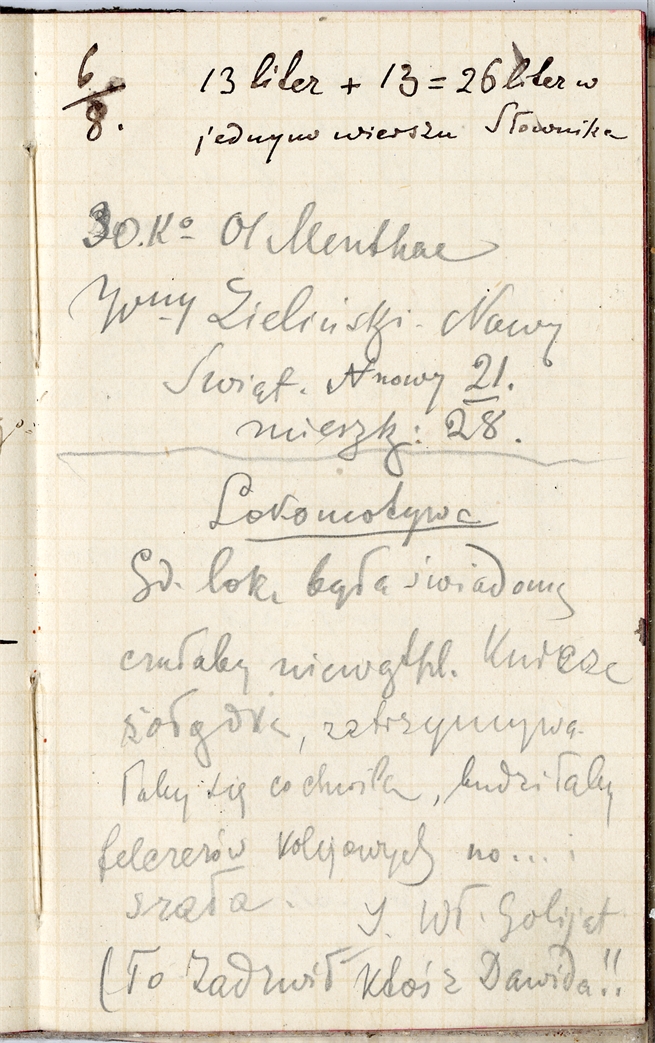 6/8. 13 liter + 13 = 26 liter w
jednym wierszu Słownika
30. Ko Ol Menthae
Zieliński. Nowy
Świat. N nowy 21.
mieszk: 28.
Lokomotywa
Gd. lok. była świadomą
czułaby niewątpl. Kurcze
żołądka, zatrzymywa-
łaby się co chwila, budziłaby
felczerów kolejowych no... i
srała.
J. Wł. Golijat
(To Zadrwił ktoś z Dawida!!